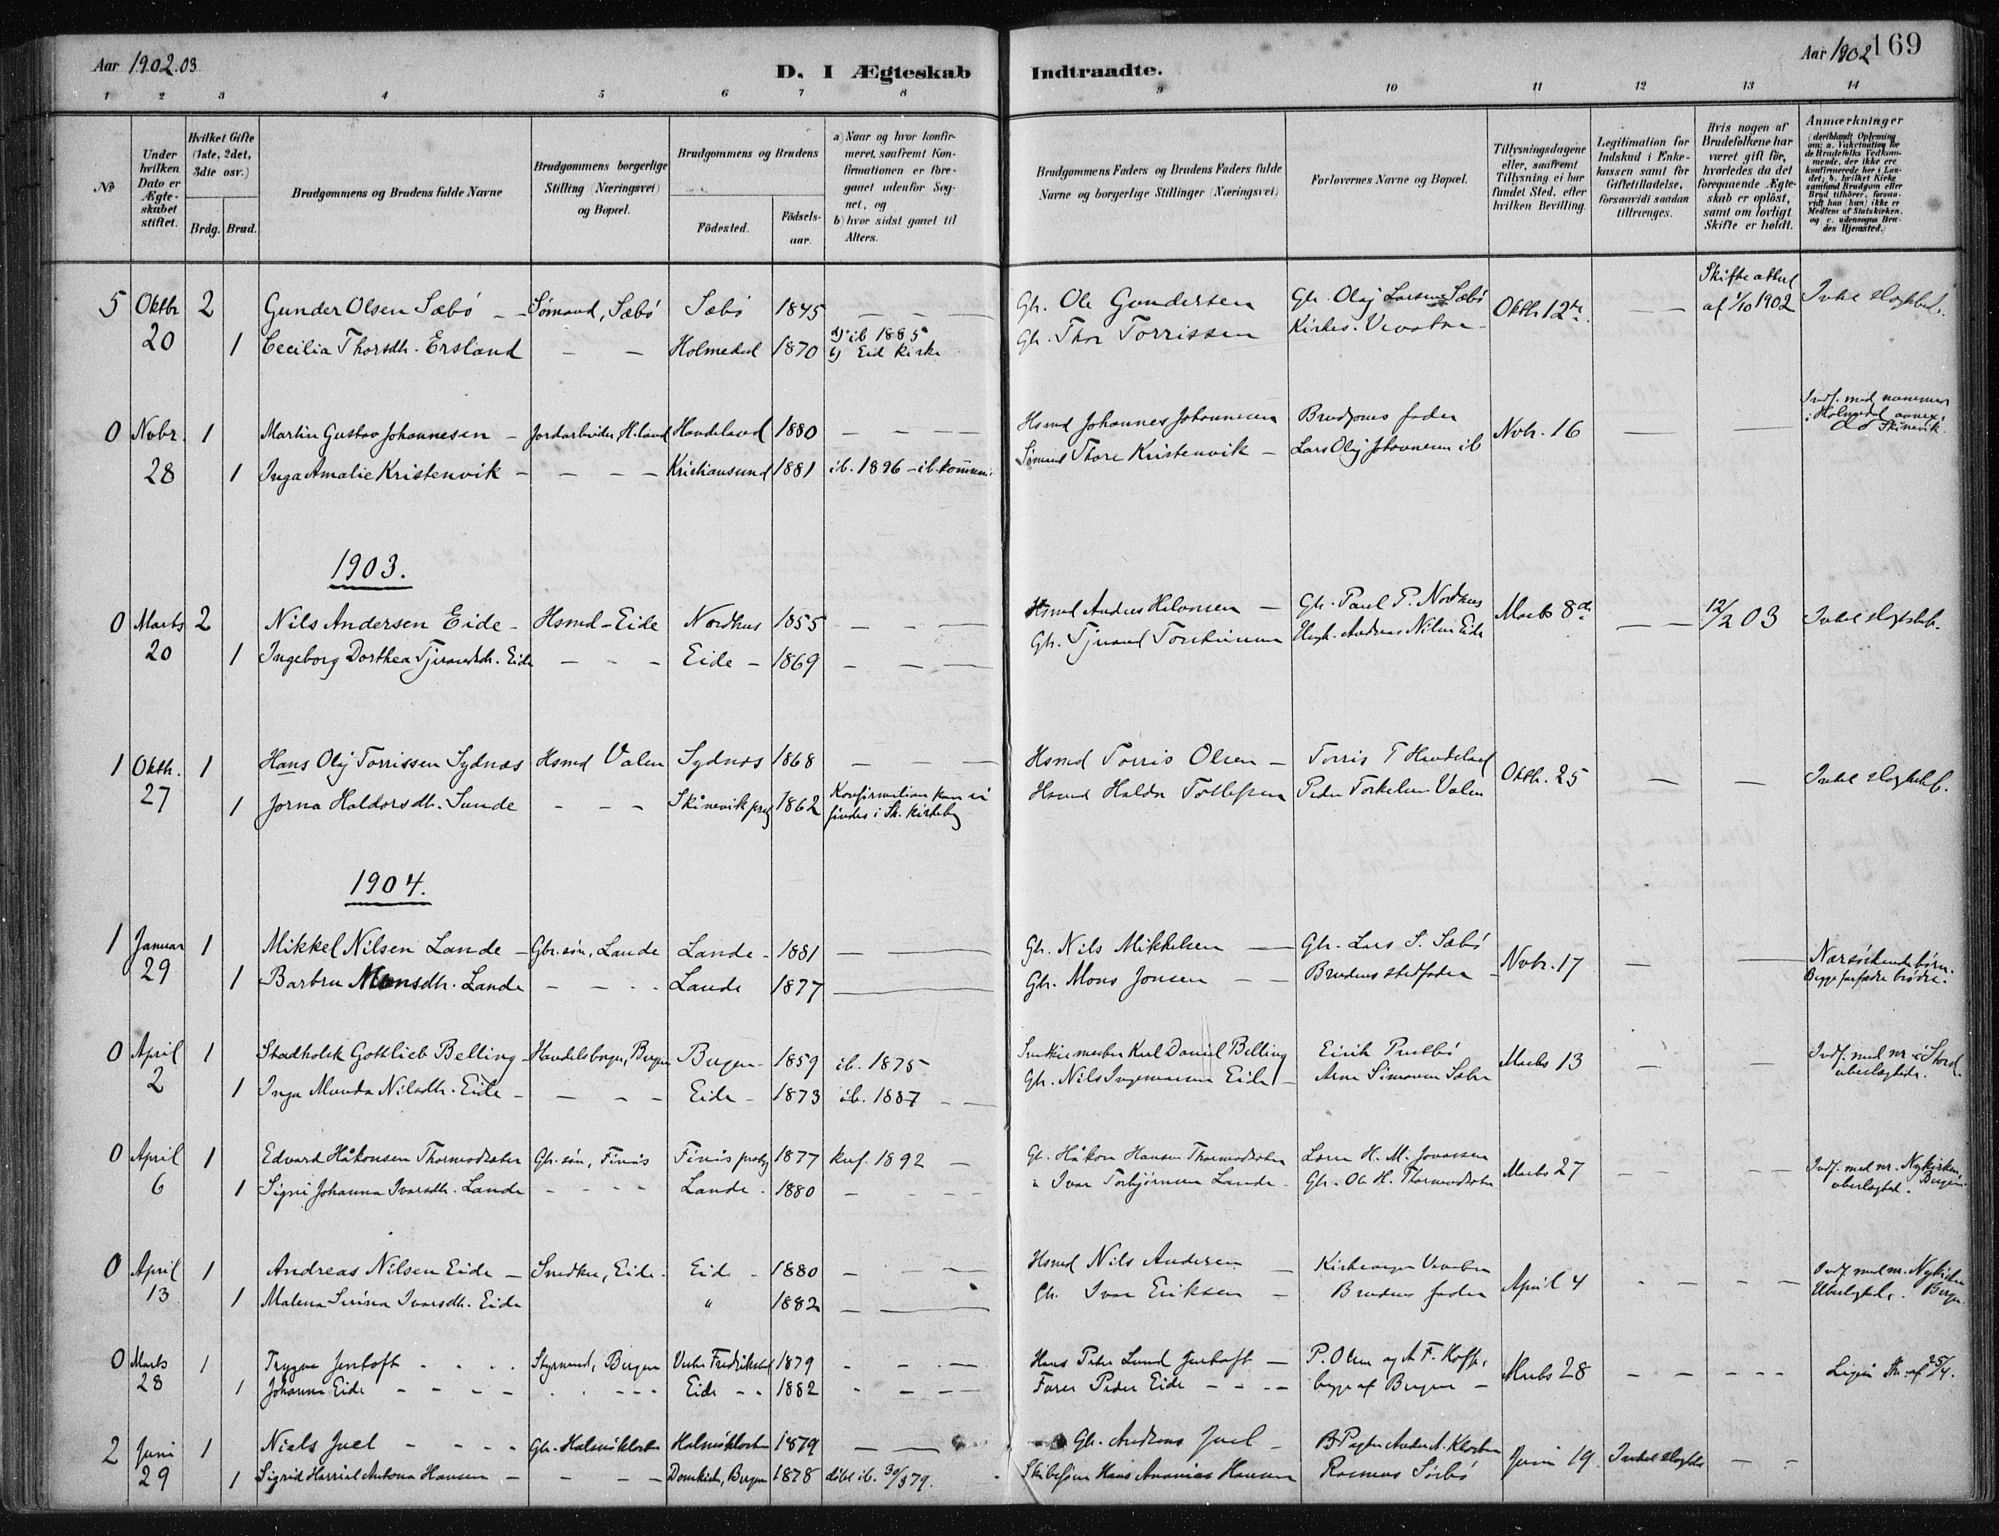 Aar 1902.03
D. I Ægteskab
Indtraadte.
Aar 1902
169
1 2 3 4 5 6 7 8 9 10 11 12 13 14
No
Under hvilken Dato er Ægteskabet stiftet.
Hvilket Gifte (1ste, 2det, 3die osv.)
Brdg. Brud.
Brudgommens og Brudens fulde Navne
Brudgommens borgerlige Stilling (Næringsvei) og Bopæl.
Brudgommens og Brudens
Fødested.
Fødselsaar.
a) Naar og hvor konfirmeret, saafremt Konfirmationen er foregaaet udenfor Sognet, og b) hvor sidst gaaet til Alters.
Brudgommens Faders og Brudens Faders fulde Navne og borgerlige Stillinger (Næringsvei)
Forlovernes Navne og Bopæl.
Tillysningsdagene eller, saafremt Tillysning ei har fundet Sted, efter hvilken Bevilling.
Legitimation for Indskud i Enkekassen samt for Giftetilladelse, forsaavidt saadan tiltrænges.
Hvis nogen af Brudefolkene har været gift før, hvorledes da det foregaaende Ægteskab er opløst, samt om lovligt Skifte er holdt.
Anmærkninger (deriblandt Oplysning om: a. Vakcination for de Brudefolks Vedkommende, der ikke ere konfirmerede her i Landet; b. hvilket Kirkesamfund Brudgom eller Brud tilhører, forsaavidt han (hun) ikke er Medlem af Statskirken, og c. udensogns Brudes Hjemsted.)
5 Oktbr 2 Gunder Olsen Sæbø – Sømand, Sæbø Sæbø 1845 — Gbr. Ole Gundersen Gbr. Olaj Larsen Sæbø Oktb. 12te — Skifteattest af 1/10 1902
20 1 Cecilia Thorsdtr. Ersland — Holmedal 1870 a) ib 1885 b) Eid kirke Gbr. Thor Torrissen
0 Nvbr. 1 Martin Gustav Johannesen – Jordarbeider H.land Hovdeland 1880 — Hsmd Johannes Johannesen Brudgoms fader Nvbr. 16 — Indf. med nummer i Holmedal annex, Skånevik
28 1 Inga Amalie Kristenvik — Kristiansund 1881 ib. 1896 – ib. Sømand Thore Kristenvik – Lars Olaj Johannesen ib
1903.
0 Marts 2 Nils Andersen Eide – Hsmd – Eide Nordhus 1855 — Hsmd Anders — Gbr. Paul P. Nordhus Marts 8de — 12/2 03
20 1 Ingeborg Dorthea Tjerandsdtr. Eide — Eide – 1869 — Gbr. Tjerand Andreas Nilsen Eide
1 Oktb. 1 Hans Olaj Torrissen Sydnæs Hsmd Valen Sydnæs 1868 — Hsmd Torris Olsen – Torris T Oktb. 25 —
27 1 Jorna Haldorsdtr. Sunde — Skånevik prg 1862 Konfirmation kan ei findes i Sk. kirkebog Hsmd Haldor Tollefsen Peder Torkelsen Valen
1904.
1 Januar 1 Mikkel Nilsen Lande – Gbr. søn, Lande Lande – 1881 — Gbr. Nils Mikkelsen — Gbr. Lars S. Sæbø Nvbr. 17 — Nærsødskendebørn.
29 1 Barbru Monsdtr. Lande — Lande 1877 — Gbr. Mons Jonsen — Brudens stedfader – Begge fædre brødre.
0 April 1 Gottlieb Belling – Handelsborger, Bergen Bergen – 1859 ib. 1875 Karl Daniel Belling Eirik Marts 13 — Indf. med nr. i Stord
2 1 Inga Manda Nilsdtr. Eide – — Eide – 1873 ib. 1887 — Gbr. Nils Ingemarsen Eide – Arne Simonsen Sæbø
0 April 1 Edvard Håkonsen Thormodsæter Gbr. søn, Finås Finås prstg 1877 knf. 1892 – Gb. Håkon Hansen Thormodsæter H. M. Marts 27 — Indf. med nr. Nykirken Bergen
6 1 Signi Johanna Ivarsdtr. Lande — Lande – 1880 — " Ivar Torbjørnsen Lande – Gbr. Ol. H. Thormodsæter
0 April 1 Andreas Nilsen Eide – Snedker, Eide – Eide – 1880 — Hsmd Nils Andersen – Kirkesanger April 4 — Indf. med nr. Nykirken Bergen
13 1 Malena Serina Ivarsdtr. Eide " 1882 — Gbr. Ivar Eriksen – Brudens fader
0 Marts 1 Trygve Jentoft — Styrmand, Bergen Vestre Fredrikstad 1879 — Hans Peter Lund Jentoft — P. Olsen og A. F. Marts 28 —
28 1 Johanna Eide — Eide – 1882 — Farer Peder Eide — begge af Bergen –
2 Juni 1 Niels Juel — Gbr. Halsnøkloster Halsnøkloster 1879 — Gbr. Andreas Juel – Juni 19 —
29 1 Sigrid Harriet Antona Hansen — Domkirk, Bergen 1878 døbt ib. 30/3 79. Hans Ananias Hansen Rasmus Sørbø